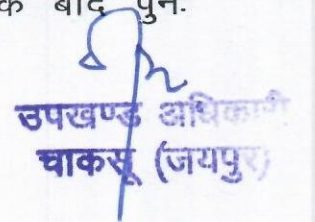 के बाद पुनः
उपखण्ड अधिकारी
चाकसू (जयपुर)